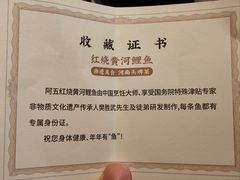 收藏证书
红烧黄河鲤鱼
非遗美食 河南头牌菜
阿五红烧黄河鲤鱼由中国烹饪大师、享受国务院特殊津贴专家
非物质文化遗产传承人樊胜武先生及徒弟研发制作,每条鱼都有
专属身份证。
祝您身体健康、年年有“鱼”!